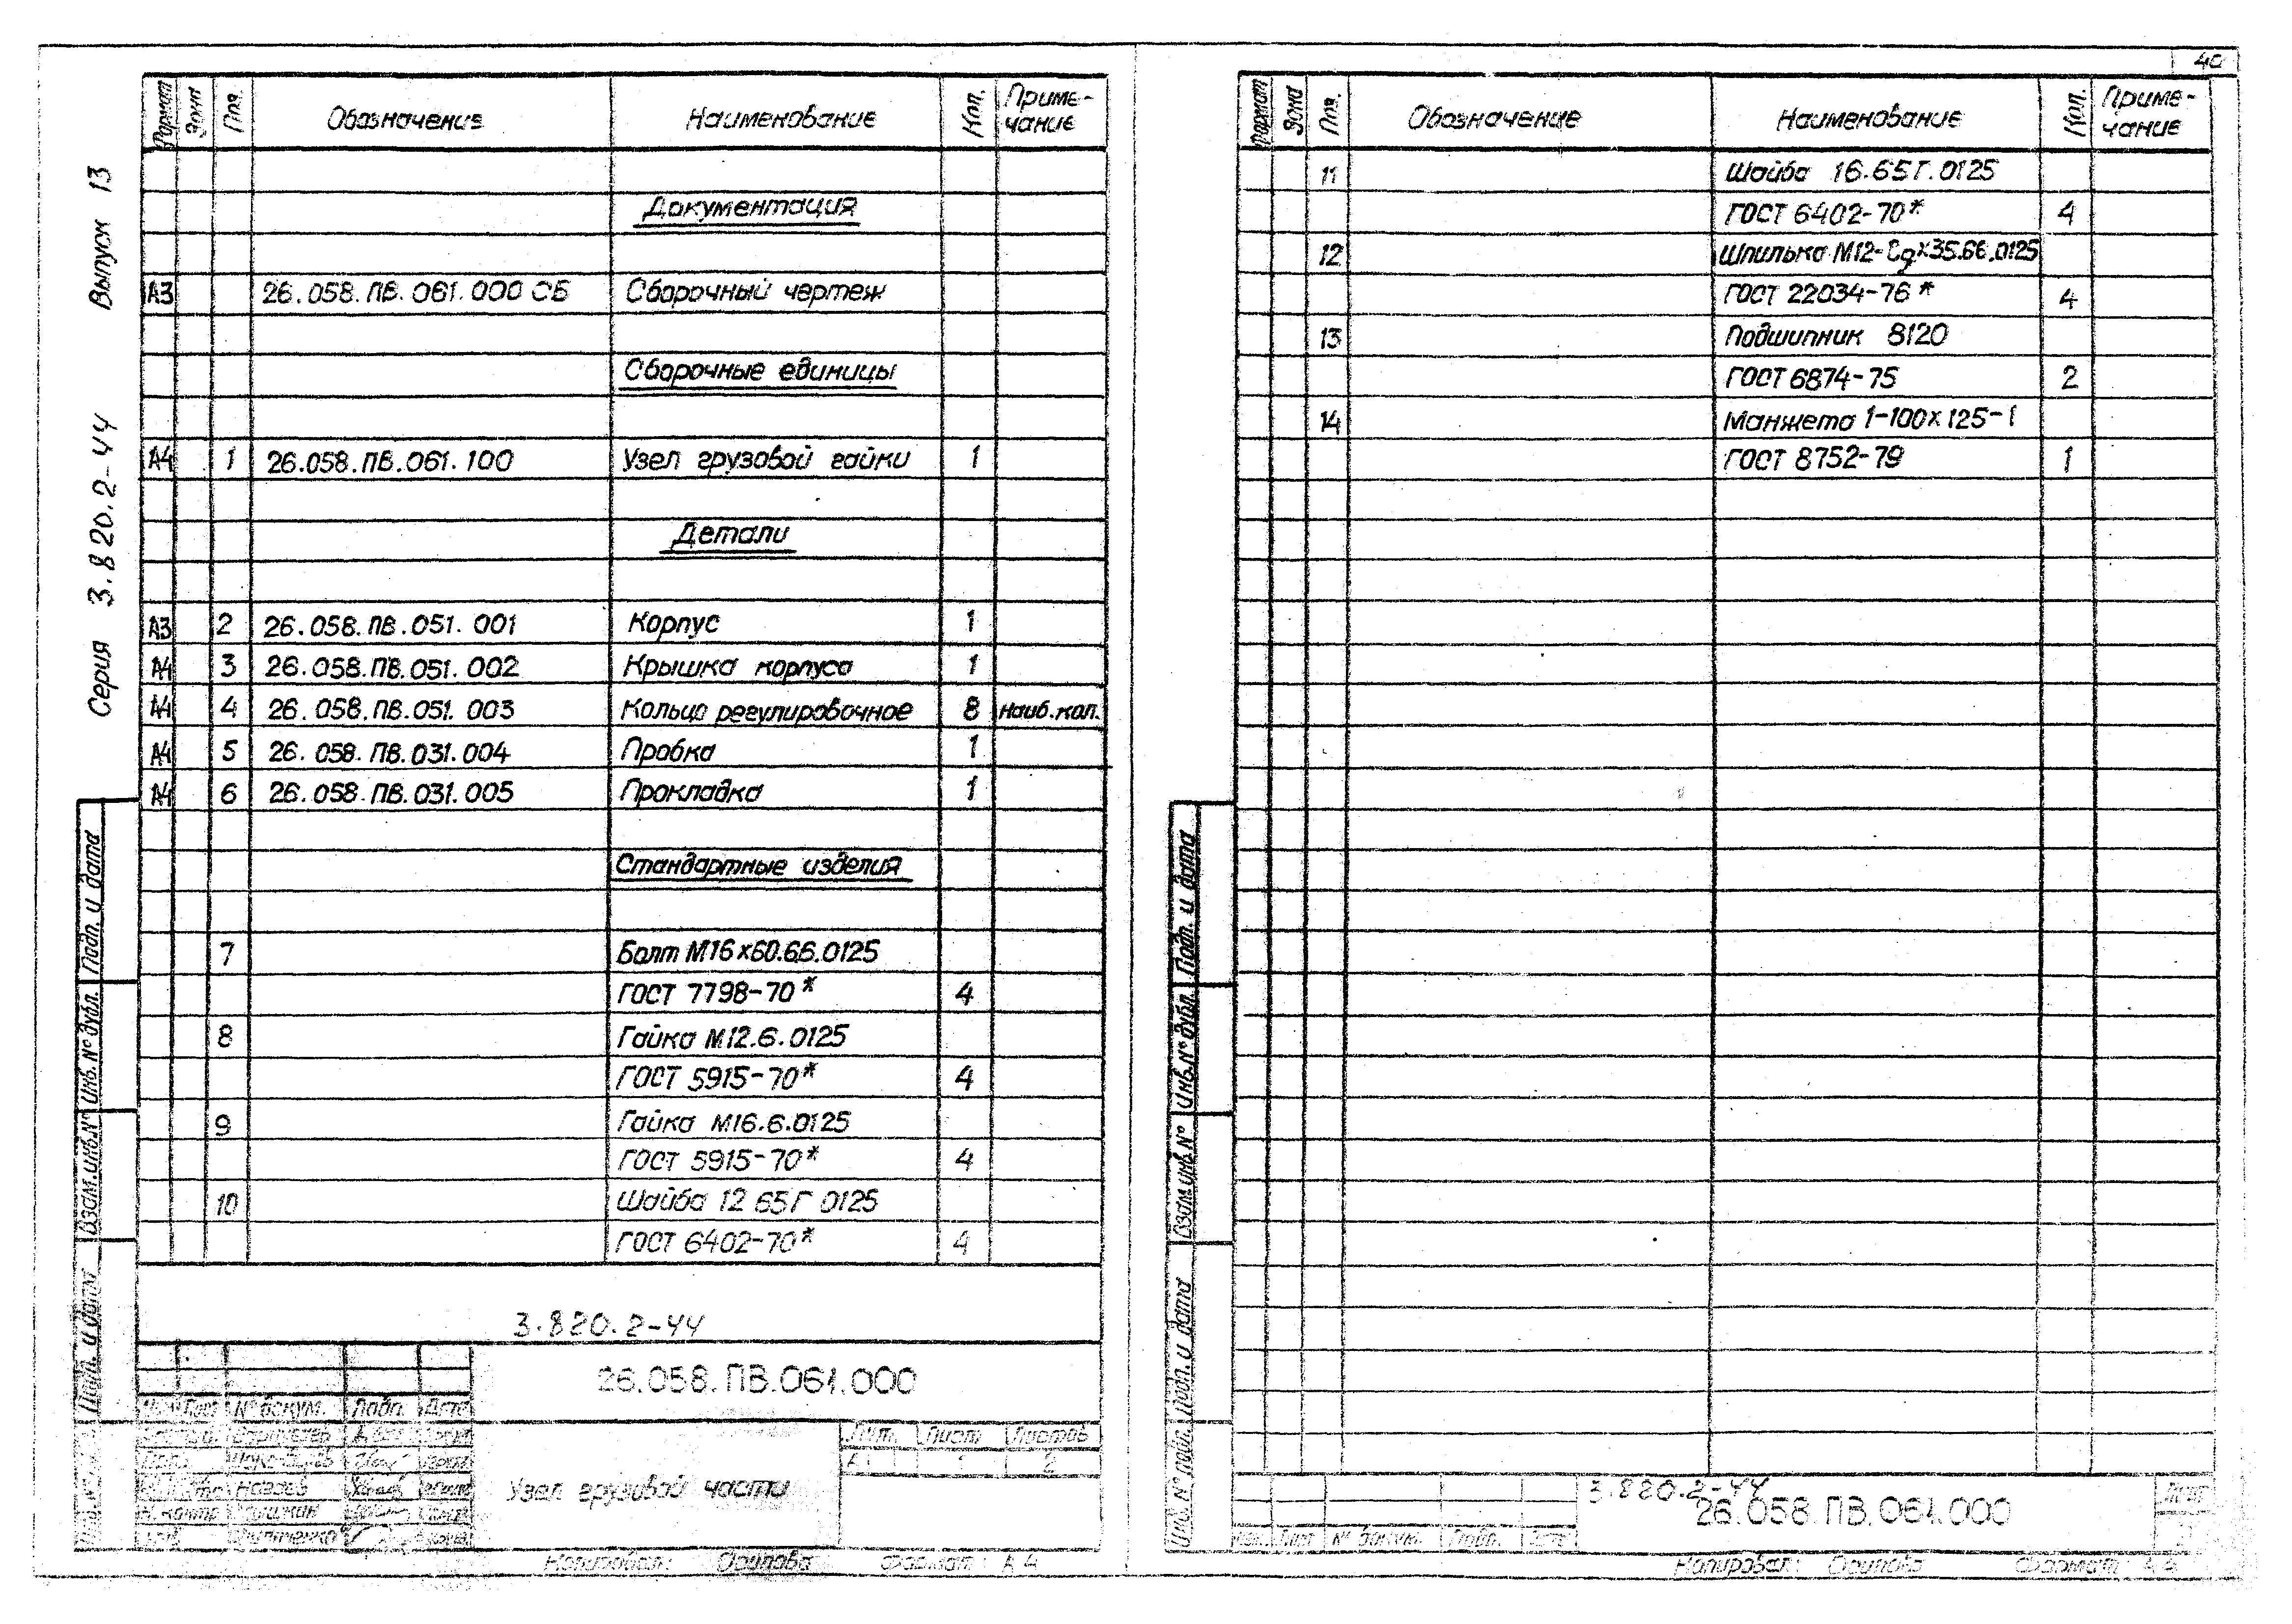 Серия 3.820.2-44 Выпуск 13
Формат Зона Поз. Обозначение Наименование Кол. Приме-
чание
Документация
А3 26.058.ПВ.061.000 СБ Сборочный чертеж
Сборочные единицы
А4 1 26.058.ПВ.061.100 Узел грузовой гайки 1
Детали
А3 2 26.058.ПВ.051.001 Корпус 1
А4 3 26.058.ПВ.051.002 Крышка корпуса 1
А4 4 26.058.ПВ.051.003 Кольцо регулировочное 8 наиб.кол.
А4 5 26.058.ПВ.031.004 Пробка 1
А4 6 26.058.ПВ.031.005 Прокладка 1
Стандартные изделия
7 Болт М16х60.66.0125
ГОСТ 7798-70* 4
8 Гайка М12.6.0125
ГОСТ 5915-70* 4
9 Гайка М16.6.0125
ГОСТ 5915-70* 4
10 Шайба 12 65Г 0125
ГОСТ 6402-70* 4
Подп. и дата
Инв.№ дубл.
Взам.инв.№
Подп. и дата
3.820.2-44
26.058.ПВ.061.000
Лист № докум. Подп. Дата
Узел грузовой части
Лит. Лист Листов
А 1 2
Копировал: Осипова Формат А4
40
Формат Зона Поз. Обозначение Наименование Кол. Приме-
чание
11 Шайба 16.65Г.0125
ГОСТ 6402-70* 4
12 Шпилька М12-8gх35.66.0125
ГОСТ 22034-76* 4
13 Подшипник 8120
ГОСТ 6874-75 2
14 Манжета 1-100х125-1
ГОСТ 8752-79 1
Подп. и дата
Инв.№ дубл.
Взам.инв.№
Подп. и дата
Инв.№ подл.
3.820.2-44
26.058.ПВ.061.000
Лист
Лист № докум. Подп. Дата
Копировал: Осипова Формат